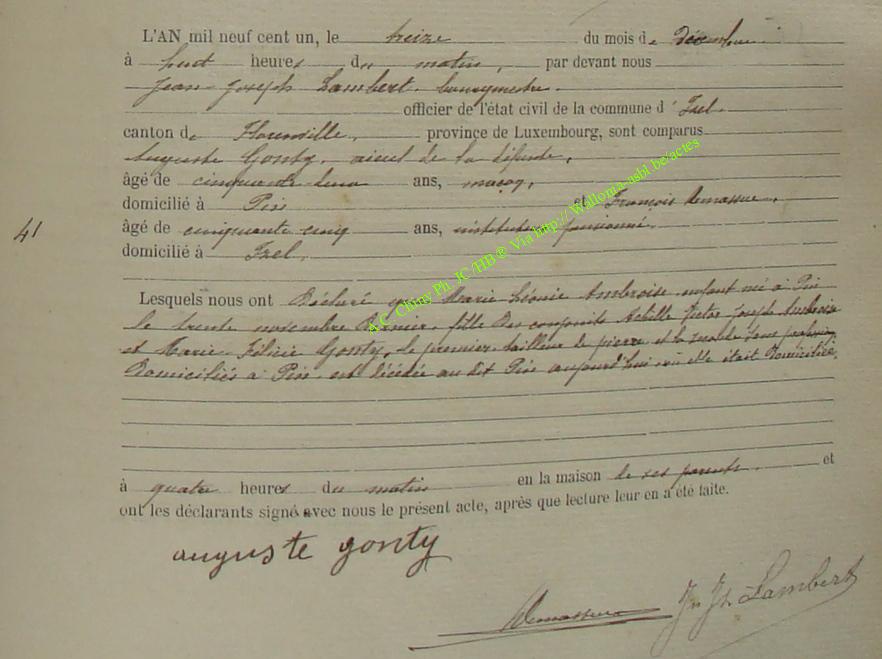 L'AN mil neuf cent un, le treize du mois de Décembre
à huit heures du matin, par devant nous
Jean-Joseph Lambert, bourgmestre,
officier de l'état civil de la commune d' Izel.
canton de Florenville, province de Luxembourg, sont comparus
Auguste Gonty, aieul de la défunte,
âgé de cinquante deux ans, maçon,
domicilié à Pin et François Demasseur,
41 âgé de cinquante cinq ans, instituteur pensionné,
domicilié à Izel,
Lesquels nous ont Déclaré que Marie Léonie Ambroise, enfant née à Pin
le trente novembre Dernier, fille Des conjoints Achille Victor Joseph Ambroise
et Marie Félicie Gonty, le premier tailleur de pierre et la seconde sans profession,
Domiciliés à Pin, est décédée au dit Pin aujourd'hui où elle était Domiciliée,
à quatre heures du matin en la maison de ses parents. et
ont les déclarants signé avec nous le présent acte, après que lecture leur en a été faite.
auguste gonty
Jn Jh Lambert
A.C. Chiny Ph. JC/HB @ Via http://Wallonia-asbl.be/actes